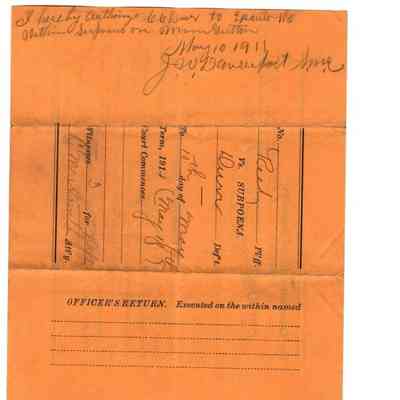 I hereby authorize C C Duer to Execute the
within Subpoena on Minnie Sutton
May 10 1911
J W Davenport
No.
Reed Pltf.
Vs. SUBPOENA.
Dunn Deft.
To 15th day of May
Term, 191
Court Commences May
Witnesses 3 for Plff
Att'y.
OFFICER'S RETURN. Executed on the within named